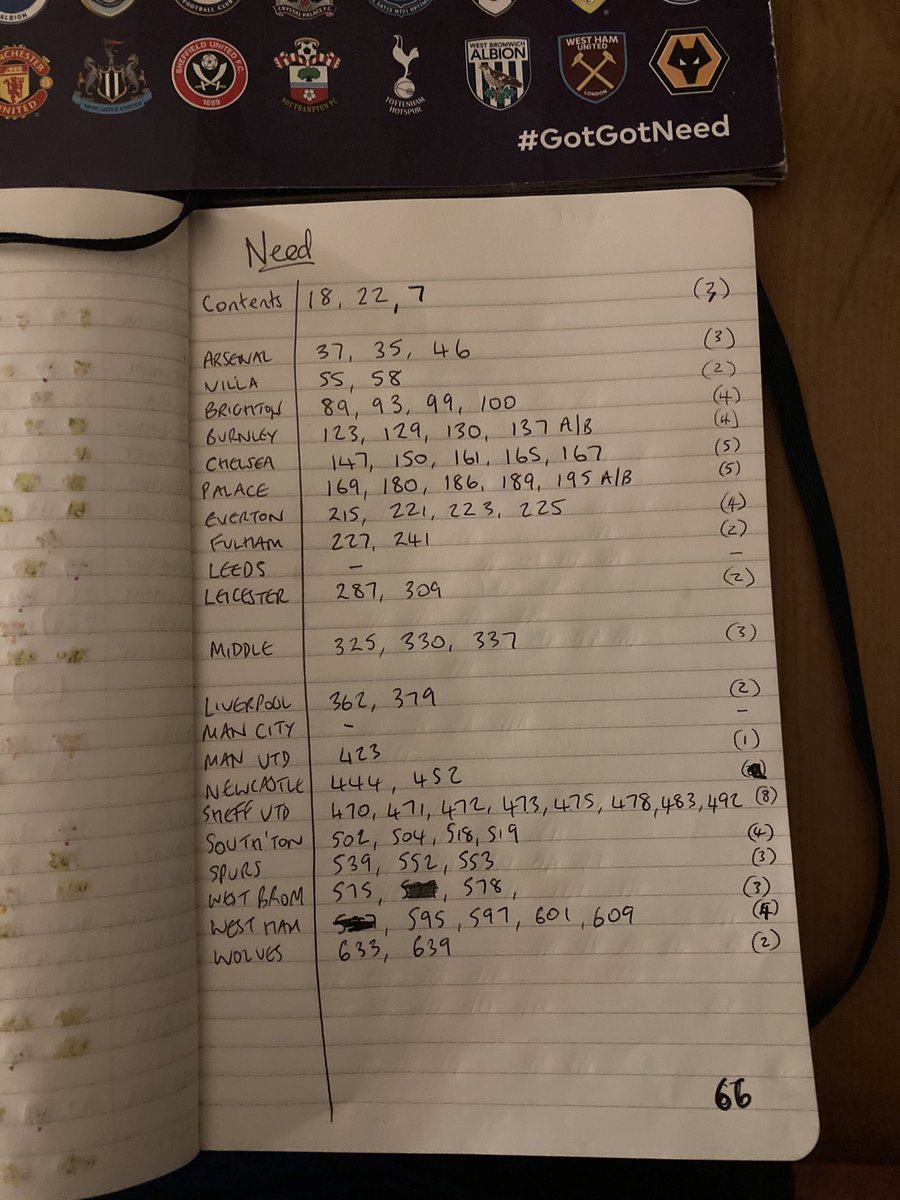 ALBION
FOOTBALL CLUB
CRYSTAL PALACE F.C.
MANCHESTER UNITED
NEWCASTLE UNITED
SHEFFIELD UNITED F.C. 1889
SOUTHAMPTON FC
TOTTENHAM HOTSPUR
WEST BROMWICH ALBION
WEST HAM UNITED LONDON
#GotGotNeed
Need
Contents 18, 22, 7 (3)
ARSENAL 37, 35, 46 (3)
VILLA 55, 58 (2)
BRIGHTON 89, 93, 99, 100 (4)
BURNLEY 123, 129, 130, 137 A/B (4)
CHELSEA 147, 150, 161, 165, 167 (5)
PALACE 169, 180, 186, 189, 195 A/B (5)
EVERTON 215, 221, 223, 225 (4)
FULHAM 227, 241 (2)
LEEDS - -
LEICESTER 287, 309 (2)
MIDDLE 325, 330, 337 (3)
LIVERPOOL 362, 379 (2)
MAN CITY - -
MAN UTD 423 (1)
NEWCASTLE 444, 452
SHEFF UTD 470, 471, 472, 473, 475, 478, 483, 492 (8)
SOUTH'TON 502, 504, 518, 519 (4)
SPURS 539, 552, 553 (3)
WEST BROM 575, , 578, (3)
WEST HAM , 595, 597, 601, 609 (4)
WOLVES 633, 639 (2)
66